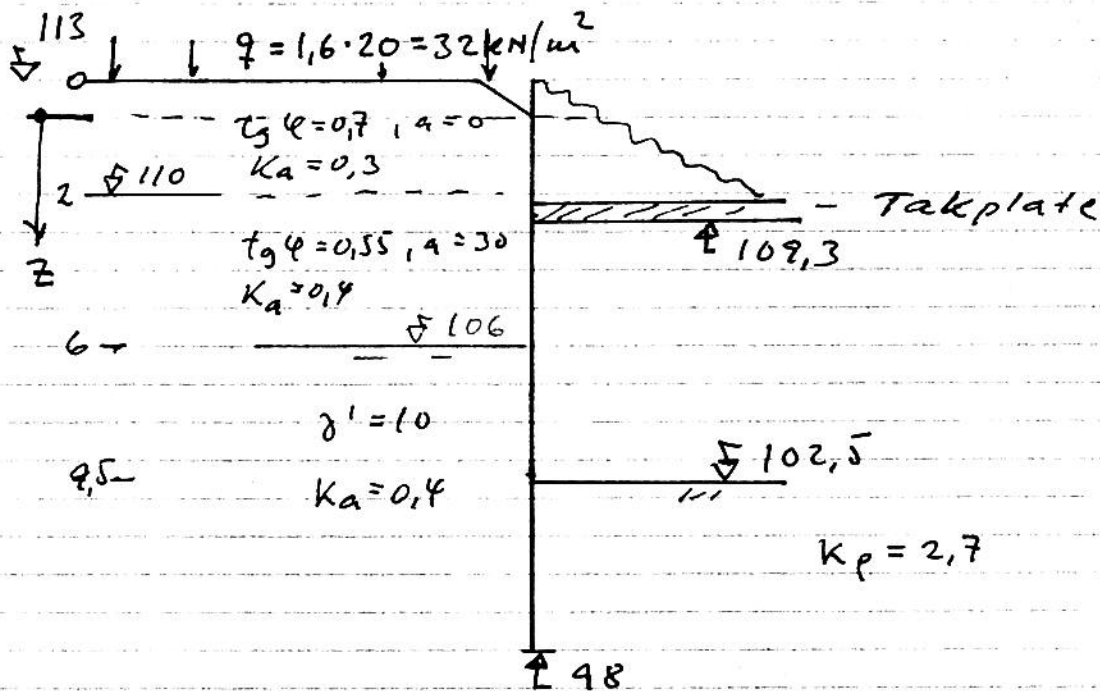 113
q = 1,6·20 = 32 kN/m²
tg φ = 0,7 , a = 0
Ka = 0,3
2
110
Takplate
109,3
tg φ = 0,55 , a = 30
Ka = 0,4
z
6
106
γ' = 10
9,5
102,5
Ka = 0,4
Kp = 2,7
98